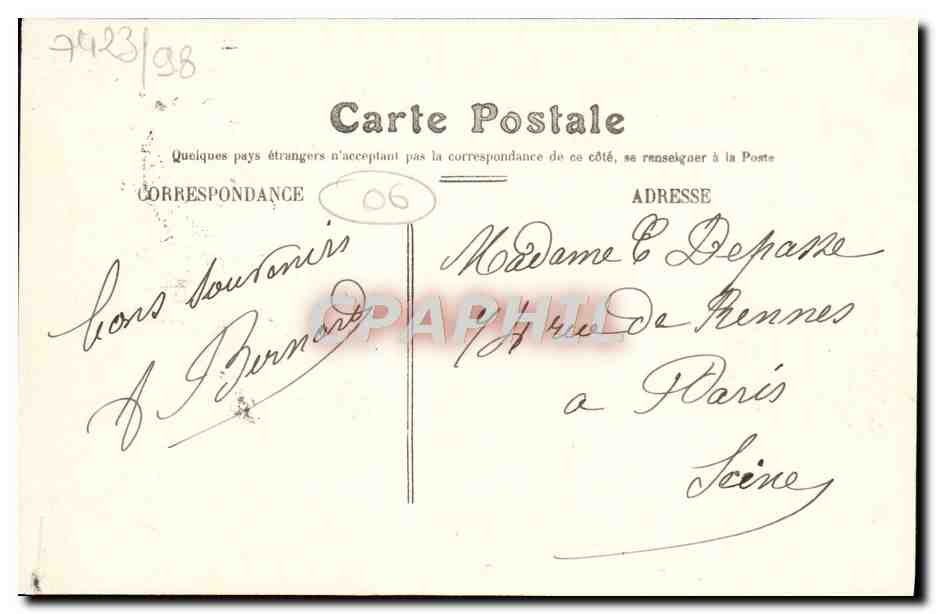 7423/98
Carte Postale
Quelques pays étrangers n'acceptent pas la correspondance de ce côté, se renseigner à la Poste
CORRESPONDANCE
06
ADRESSE
bons souvenirs
A Bernard
Madame C Depasse
rue de Rennes
a Paris
Seine
CPAPHIL